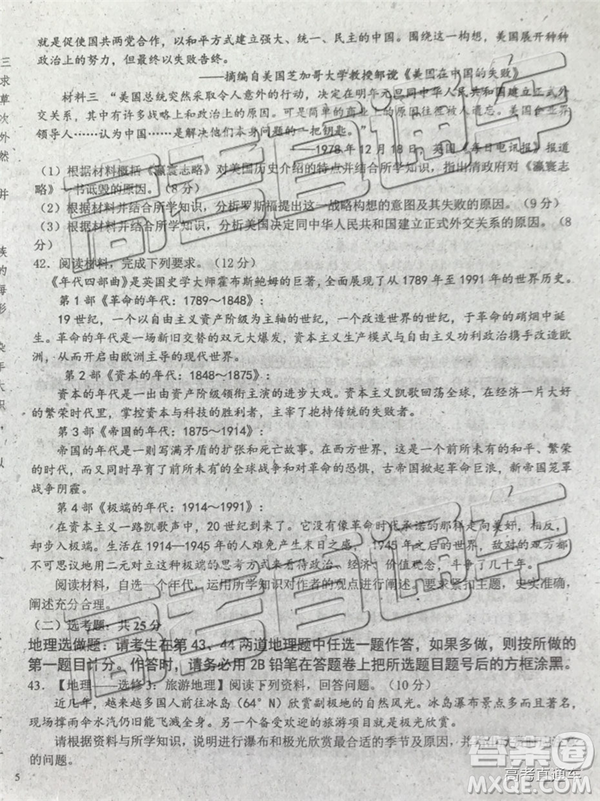 就是促使国共两党合作，以和平方式建立统一、民主的中国。围绕这一构想，美国开展了种种
政治上的努力，但最终以失败告终。
——摘编自美国芝加哥大学教授邹谠《美国在中国的失败》
材料三　“美国总统突然采取令人意外的行动，决定在明年元旦同中华人民共和国建立正式外
交关系，其中有许多战略上和政治上的原因
领导人……认为中国……是解决他们本身问题的一把钥匙。
1978年12月18日，英国《每日电讯报》报道
（1）根据材料概括《瀛寰志略》对美国历史介绍的特点并结合所学知识，指出清政府对《瀛寰志
略》一书诋毁的原因。（8分）
（2）根据材料并结合所学知识，分析罗斯福提出这一战略构想的意图及其失败的原因。（9分）
（3）根据材料并结合所学知识，分析美国决定同中华人民共和国建立正式外交关系的原因。（8
分）
42. 阅读材料，完成下列要求。（12分）
《年代四部曲》是英国史学大师霍布斯鲍姆的巨著，全面展现了从1789年至1991年的世界历史。
第1部《革命的年代：1789～1848》：
19世纪，一个以自由主义资产阶级为主的世纪，一个改造世界的世纪，于革命的硝烟中诞
生。革命的年代是一场新旧交替的双元大爆发，资本主义生产模式与自由主义功利政治携手改造
欧洲，从而开启由欧洲主导的现代世界。
第2部《资本的年代：1848～1875》：
资本的年代是一出由资产阶级领衔主演的进步大戏。资本主义凯歌回荡全球，在经济一片大
好的繁荣时代里，掌控资本与科技的胜利者，主宰了抱残守缺的传统的失败者。
第3部《帝国的年代：1875～1914》：
帝国的年代，是一则写满了矛盾的扩张和死亡故事。在西方，它有前所未有的和平、繁荣
的时代，而又难逃孕育了前所未有的全球战争和对革命的恐慌。古典帝国掀起革命巨浪，新兴帝国
战争阴霾。
第4部《极端的年代：1914～1991》：
在资本主义一路凯歌声中，20世纪到来了。它没有像革命年代承诺的那样走向美好，相反
却走向了极端。生活在1914—1945年的人难免产生末日之感，1945年以后，敌对的双方都
不可思议地用二元对立这种极端的思维来看待政治、经济及至一切，争斗了几十年。
阅读材料，自选一个年代，运用所学知识对作者的观点进行阐述。（要求紧扣主题，史实准确，
阐述充分合理。
（二）选考题：共25分
地理选做题：请考生在第43、44两道地理题中任选一题作答，如果多做，则按所做的
第一题目计分。作答时，请务必用2B铅笔在答题卷上把所选题目题号后的方框涂黑。
43. 【地理——选修3：旅游地理】阅读下列资料，回答问题。（10分）
近几年，越来越多国人前往冰岛（64°N）欣赏副极地的自然美景。冰岛瀑布景点多而且著名，
雨季两岸伞水花仍旧能飞溅全身。另一个备受欢迎的旅游项目就是极光欣赏。
请根据资料与所学知识，说明进行瀑布和极光欣赏最合适的季节及原因，并
的问题。
5
高考直通车
答案圈
高考直通车